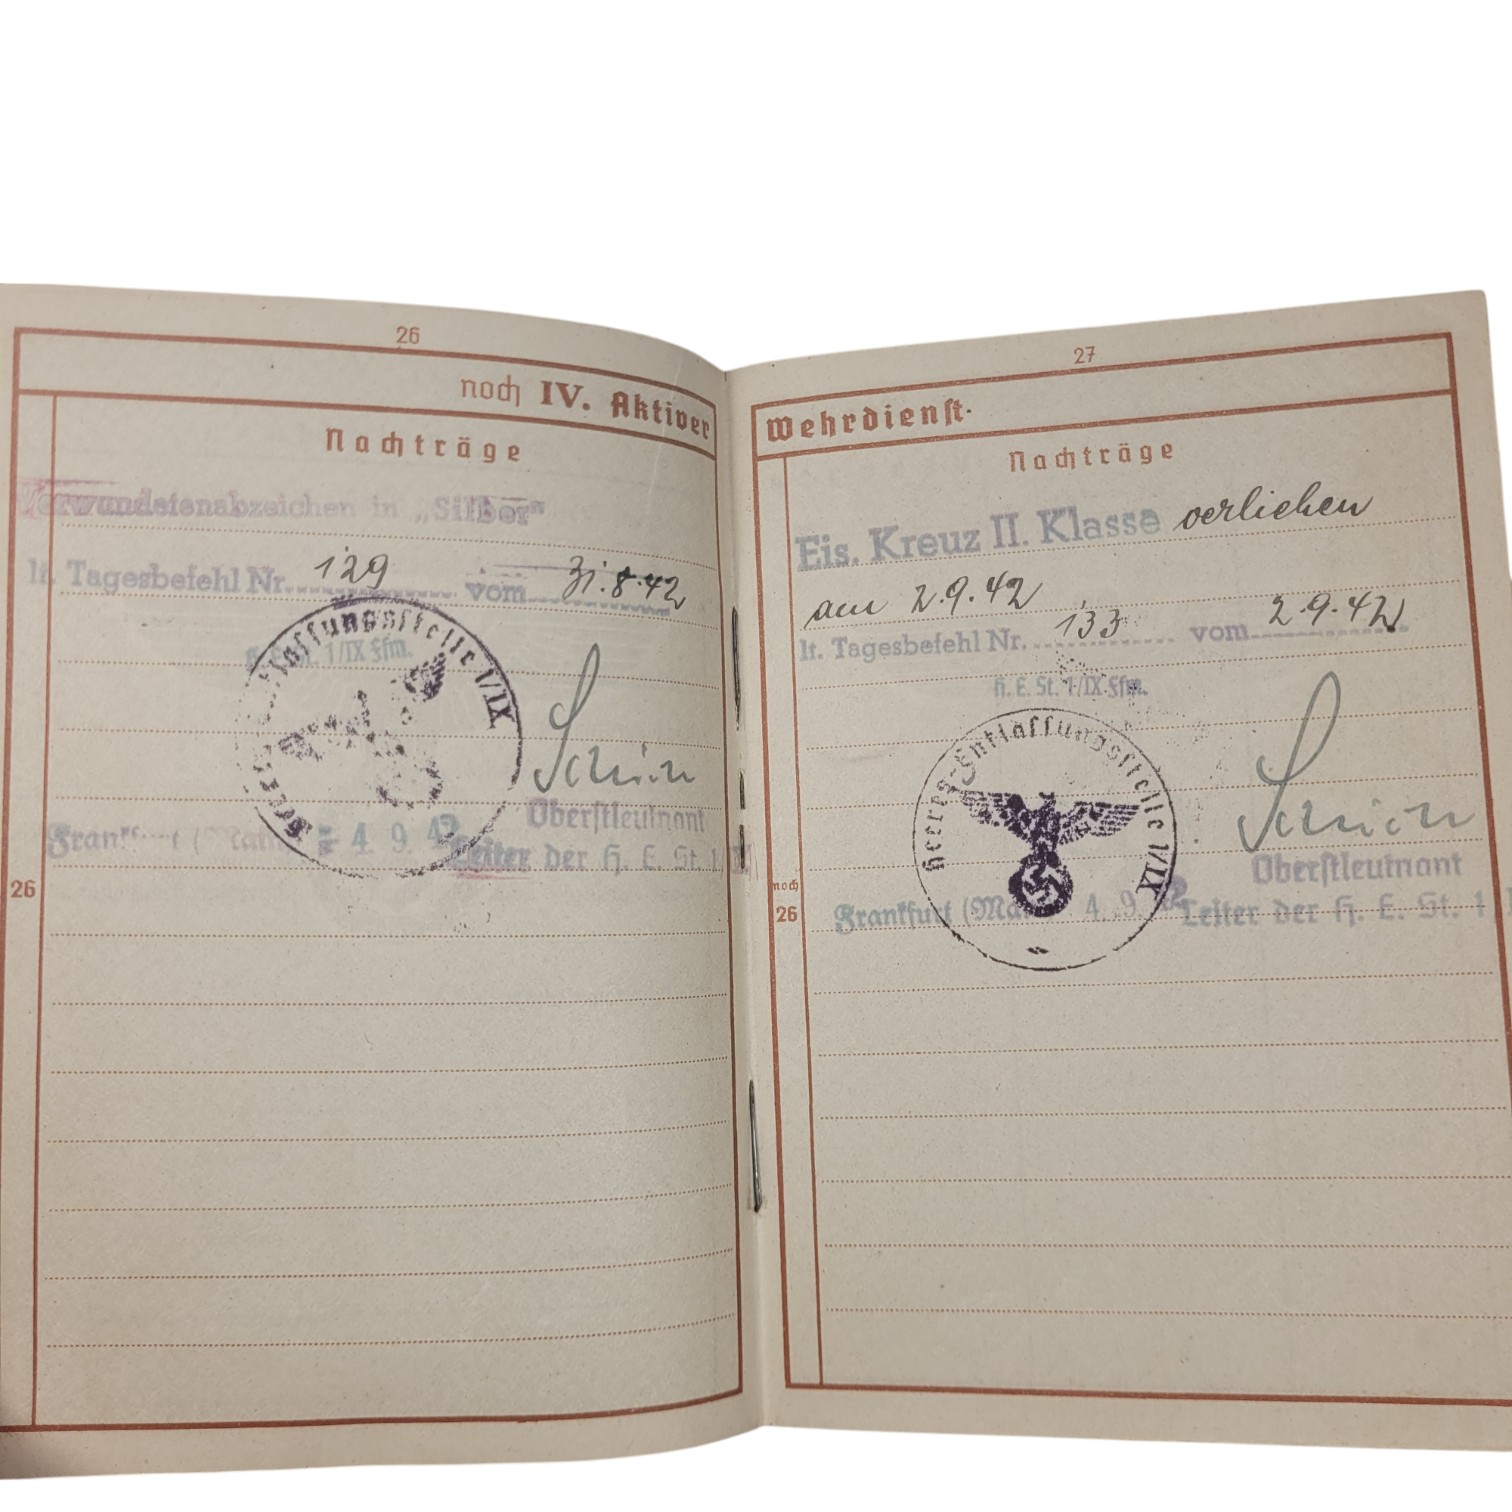 26
noch IV. Aktiver
Nachträge
Verwundetenabzeichen in „Silber"
lt. Tagesbefehl Nr. 129 vom 31.8.42
H. E. St. 1/IX Ffm.
Heeres-Entlassungsstelle 1/IX
Oberstleutnant
Frankfurt (Main) 4. 9. 42
Leiter der H. E. St. 1
26
27
Wehrdienst.
Nachträge
Eis. Kreuz II. Klasse verliehen
am 2.9.42
lt. Tagesbefehl Nr. 133 vom 2.9.42
H. E. St. 1/IX Ffm.
Heeres-Entlassungsstelle 1/IX
Oberstleutnant
Frankfurt (Main) 4. 9. 42
Leiter der H. E. St. 1
noch
26